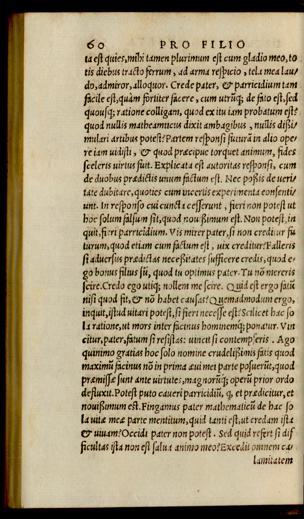 60 PRO FILIO
ta est quies, mihi tamen plurimum est cum gladio meo, to
tis diebus tracto ferrum, ad arma respicio, tela mea lau
do, admiror, alloquor. Crede pater, & parricidium tam
facile est, quàm fortiter facere, cum utrũq; de fato est, sed
quousq; ratione colligam, quod ex itu iam probatum est?
quod nullis mathematicus dixit ambagibus, nullis dißi-
mulari artibus potest? Partem responsi futurā in alio ope-
re iam uidisti, & quod præcipue torquet animum, fides
sceleris uirtus fuit. Explicata est autoritas responsi, cum
de duobus prædictis unum factum est. Nec poßis de ueri-
tate dubitare, quoties cum incertis experimenta consenti-
unt. In responso cui cuncta cesserunt, fieri non potest ut
hoc solum falsum sit, quod nouißimum est. Non potest, in
quit, fieri parricidium. Vis mirer pater, si non creditur fu
turum, quod etiam cum factum est, uix creditur? Falleris
si aduersus prædictas necessitates sufficere credis, quod e-
go bonus filius sũ, quod tu optimus pater. Tu nõ mereris
scire. Credo ego utiq; nollem me scire. Quid est ergo fatũ
nisi quod fit, & nõ habet causas? Quemadmodum ergo,
inquit, istud uitari potest, si fieri necesse est? Scilicet hac so
la ratione, ut mors inter facinus hominemq; ponatur. Vin
citur, pater, fatum si resistas: uincit si contempseris. Ago
quinimo gratias hoc solo nomine crudelißimis fatis quod
maximũ facinus nõ in prima æui mei parte posuerũt, quod
præmissæ sunt ante uirtutes, magnorũq; operũ prior ordo
defluxit. Potest puto caueri parricidiũ, q, et prædicitur, et
nouißimum est. Fingamus pater mathematicũ de hac so
la uitæ meæ parte mentitum, quid tanti est, ut credam ista
& uiuam? Occidi pater non potest. Sed quid refert si dif
ficultas ista non est salua animo meo? Excedit omnem ca-
lamitatem